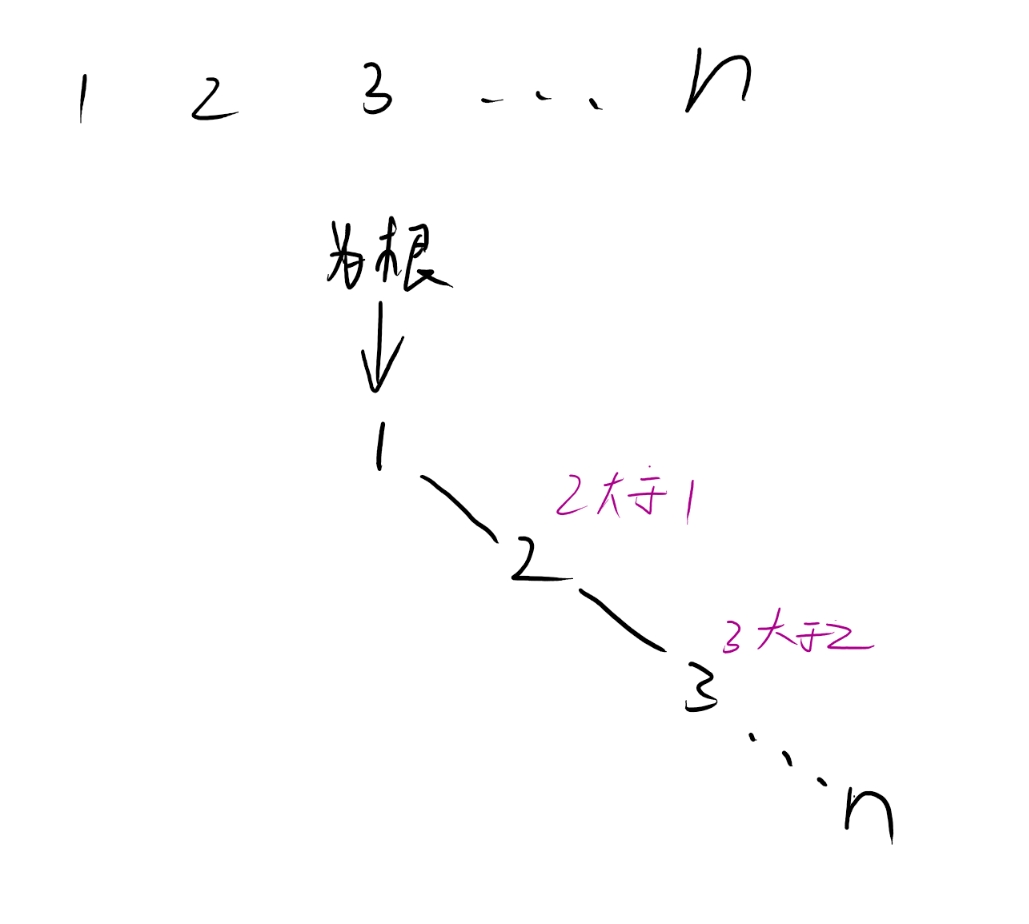 1 2 3 ... n
为根
1
2大于1
2
3大于2
3
...
n